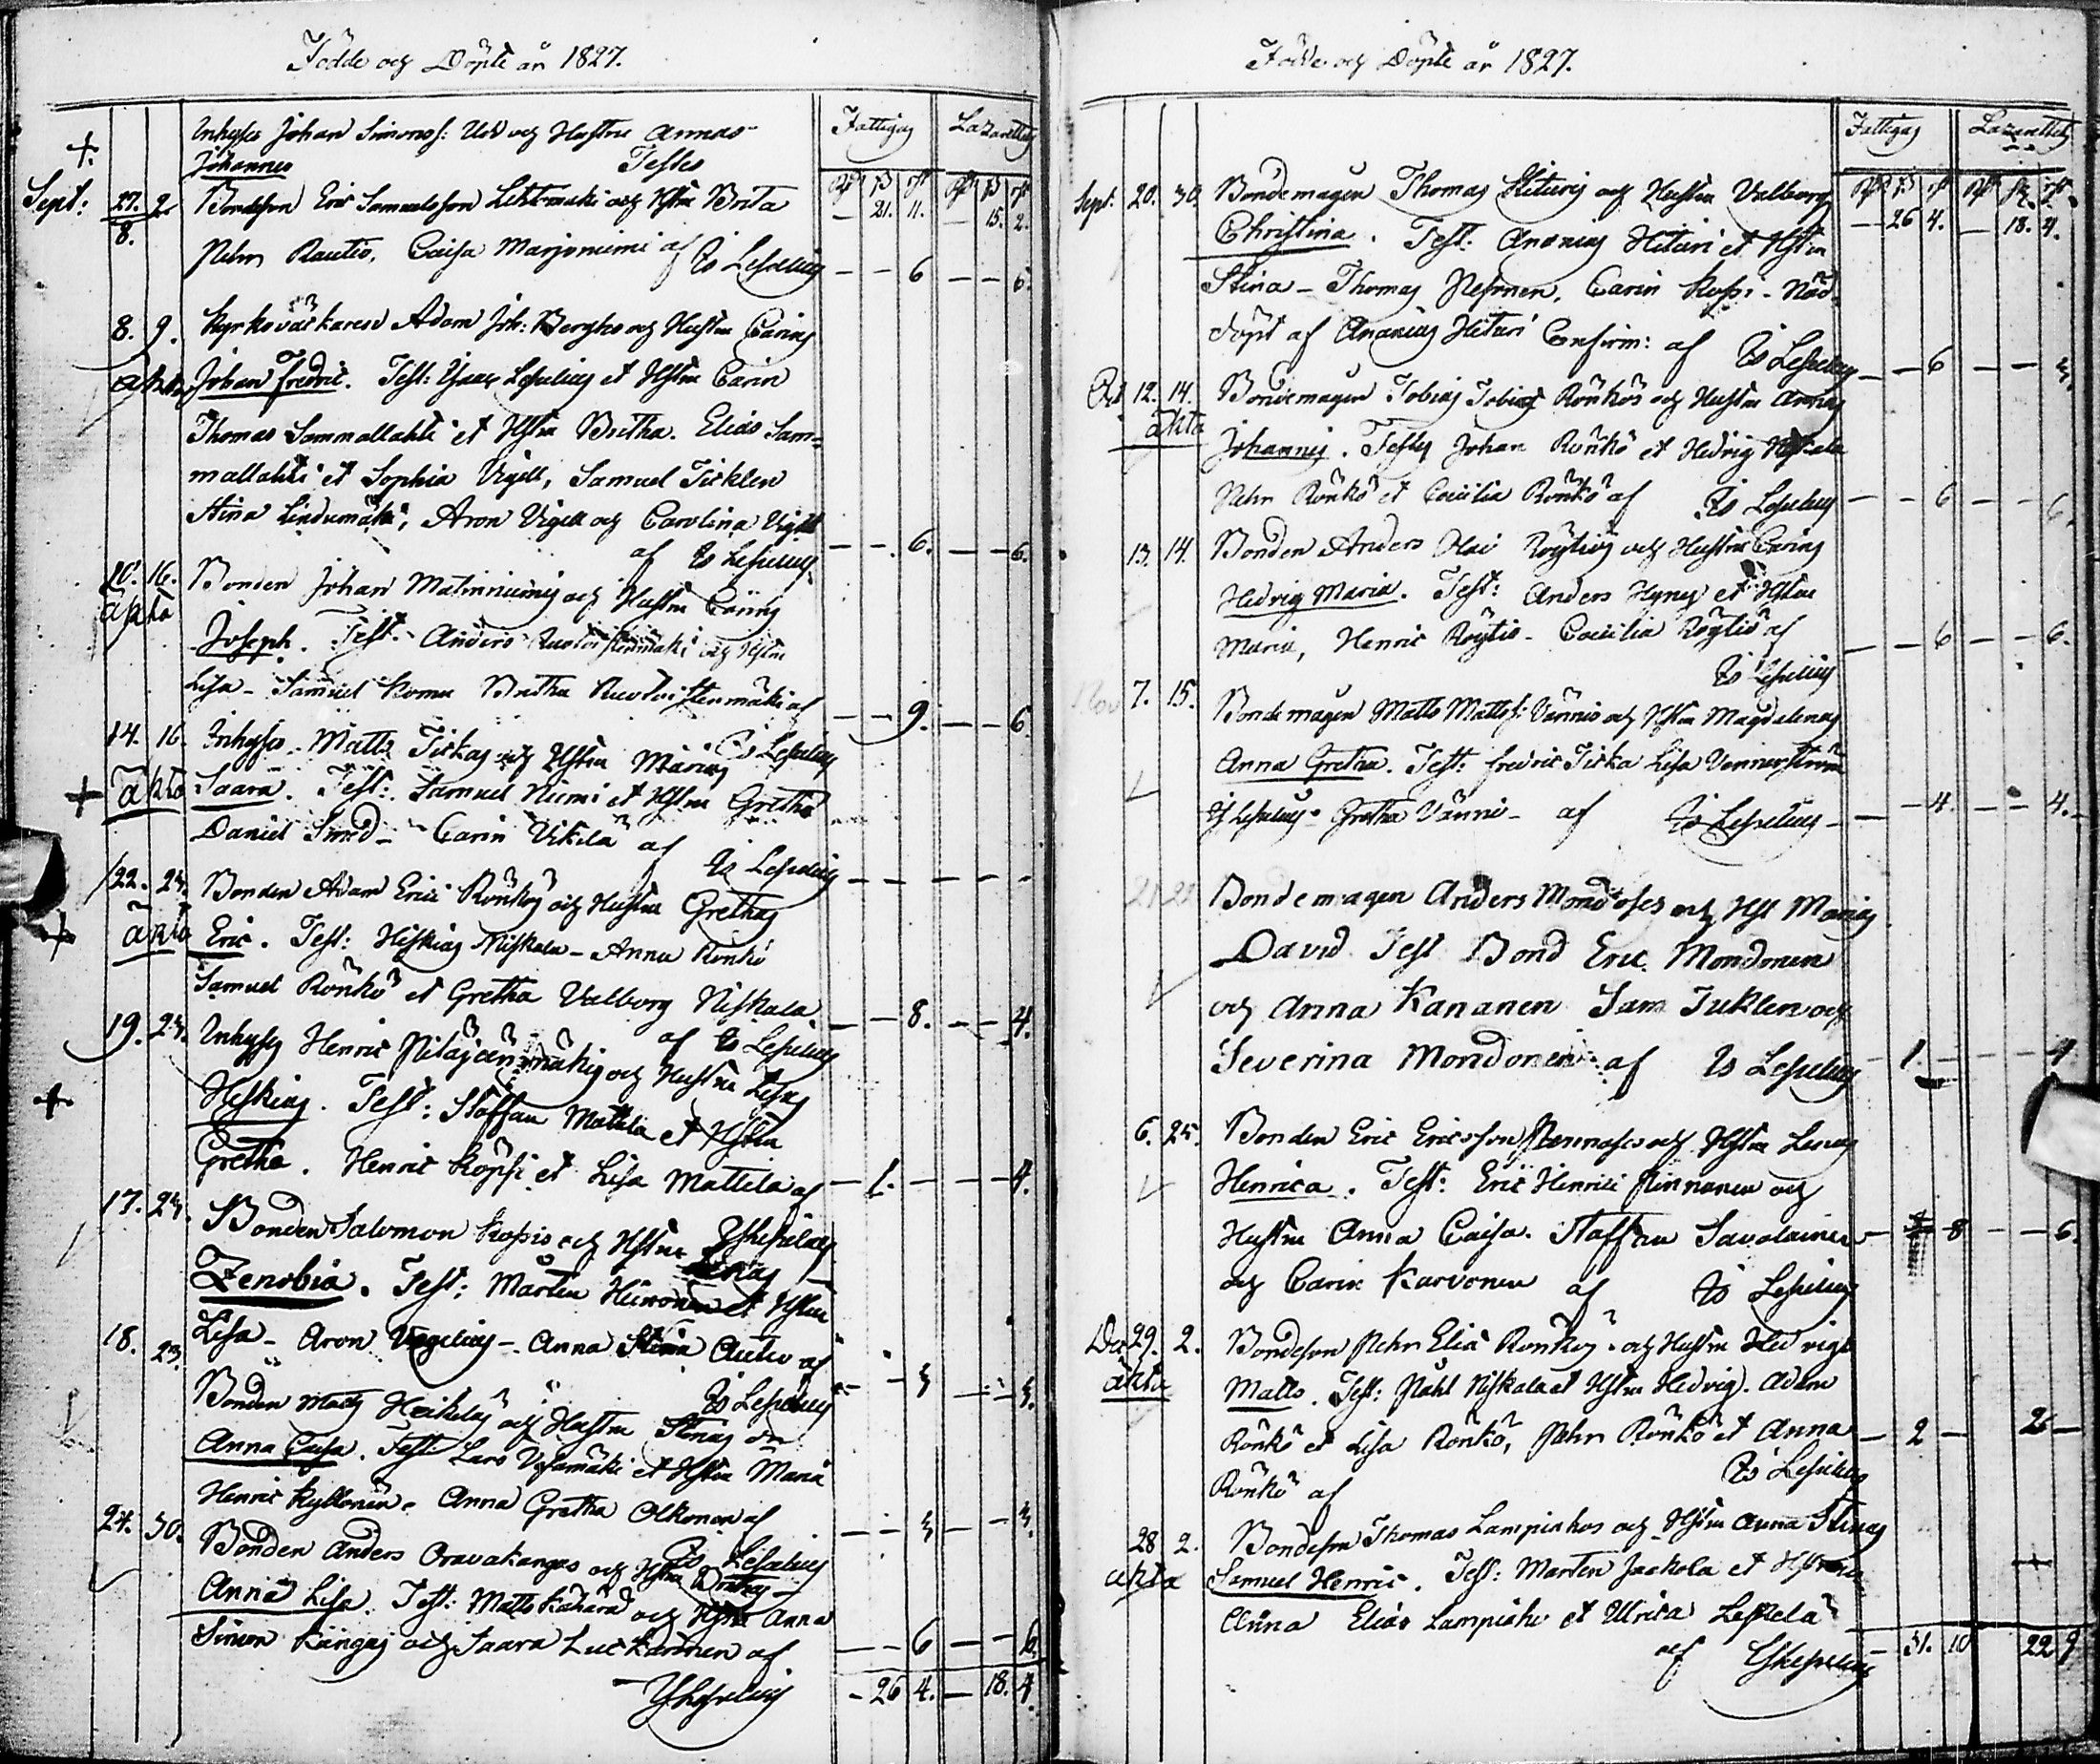 Födde och Döpte år 1827.
Fattigas Lazarettet
Inhyses Johan Simonss: och Hustru Annas
Johannes Testes
Sept: 27/8. 2. Bondeson Eric Samuelsson Lehtimäki och Hstru Brita — 21. 11. — 15. 2.
Pehr Rautio, Caisa Marjoniemi af Is Lesselius — — 6 — — 6.
8. 9. Kyrkoväktaren Adam Joh: Bergs och Hustru Carins
äkta Johan Fredric. Test: Isaac Lesselius et Hstru Carin
Thomas Sammallahti et Hstru Britha. Elias Sam=
mallahti et Sophia Vigell, Samuel Ticklen
Stina Lindumäki, Aron Vigell och Carolina Vigell
af Is Lesselius — — 6. — — 6.
16. Bonden Johan Matinniemis och Hustru Carins
äkta Joseph. Test: Anders
Lisa - Samuel Koma Britha af — — 9. — — 6.
Is Lesselius
14. 16. Inhyses Matts Tickas och Hstru Marias
äkta Saara. Test: Samuel Niemi et Hstru Gretha
Daniel Smed - Carin Vikela af
Is Lesselius — — — — — —
22. 23. Bonden Adam Erici Rönkös och Hustru Grethas
äkta Eric. Test: Hiskias Niskala - Anna Rönkö
Samuel Rönkö et Gretha Valborg Niskala
af Is Lesselius — — 8. — — 4.
19. 23. Inhyses Henric Pitäjänmäkis och Hustru Lisas
Hiskias. Test: Staffan Mattila et Hstru
Gretha. Henric Köpsi et Lisa Mattila af — 1. — — — 4.
17. 23. Bonden Salomon Kopsis och Hstru
Zenobia. Test: Mårten Hiironen et Hstru
Lisa - Aron Vegelius - Anna Stina Autio af
Is Lesselius — — 3 — — 3.
18. 23. Bonden Matts Heikeläs och Hustru Stinas
Anna Caisa. Test: Lars Vesamäki et Hstru Maria
Henric Kyllönen. Anna Gretha Olkonen af — — 3 — — 3.
Is Lesselius
24. 30. Bonden Anders Oravakangas och Hstru Brithas
Anna Lisa. Test: Matts Kähärä och Hstru Anna
Simon Kangas och Saara Luckarinen af — — 6 — — 6
Lesselius — 26 4. — 18. 4.
Födde och Döpte år 1827.
Fattigas Lazarettet
Sept. 20. 30. Bondemågen Thomas Hituris och Hustru Valborgs — 26 4. — 18. 4.
Christina. Test: Ananias Hituri et Hstru
Stina - Thomas Pesonen, Carin Kopsi - Nöd=
döpt af Ananias Hituri Confirm: af Is Lesselius — — 6 — — 3.
Oct. 12. 14. Bondemågen Tobias Tobias Rönkös och Hustru Annas
äkta Johannes. Testes Johan Rönkö et Hedvig Niskala
Pehr Rönkö et Cecilia Rönkö af Is Lesselius — — 6 — — 6.
13. 14. Bonden Anders Olai Röytiös och Hustru Carins
Hedvig Maria. Test: Anders Hynys et Hstru
Maria, Henric Röytiö - Cecilia Röytiö af — — 6 — — 6.
Is Lesselius
Nov 7. 15. Bondemågen Matts Mattss: Vännis och Hstru Magdalenas
Anna Gretha. Test: Fredric Ticka Lisa Vennerström
Is Lesselius Gretha Vänni - af Is Lesselius — — 4. — — 4.
21 25 Bondemågen Anders Mondoses och Hst Marias
David Test Bond Eric Mondonen
och Anna Kananen Sam Tuklen och
Severina Mondonen af Is Lesselius — 1. — — — 4
6. 25. Bonden Eric Ericsson och Hstru Lenas
Henrica. Test: Eric Henrici Pinnonen och
Hustru Anna Caisa. Staffan Savolainen — 8 — — 6.
och Carin Karvonen af Is Lesselius
Dec 29. 2. Bondeson Pehr Elia Rönkös och Hustru Hedvigs
äkta Matts. Test: Påhl Niskala et Hstru Hedvig. Adam
Rönkö et Lisa Rönkö, Pehr Rönkö et Anna — 2 — 2 —
Rönkö af Is Lesselius
28 2. Bondeson Thomas Lampinhos och Hstru Anna Stinas
äkta Samuel Henric. Test: Mårten Jaakola et Hstru
Anna Elias Lampinho et Ulrica Leppelä
af Lesselius — 31. 10 22 9